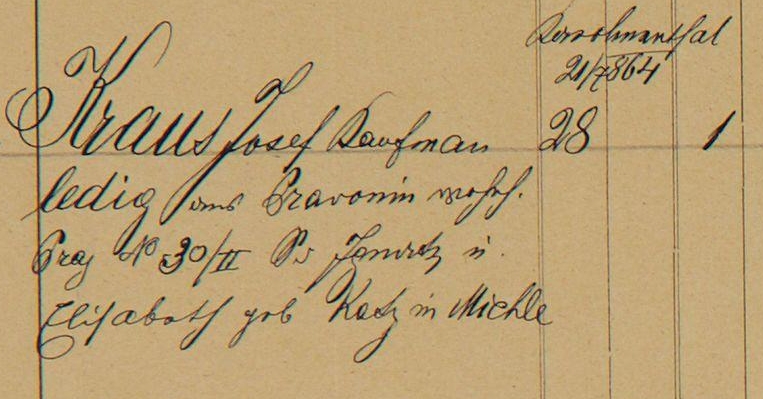 Karolinenthal
21/7 864
Kraus Josef Kaufman 28 1
ledig aus Pravonin wohnh.
Prag No 30/II Ps u.
Elisabeth geb Katz in Michle